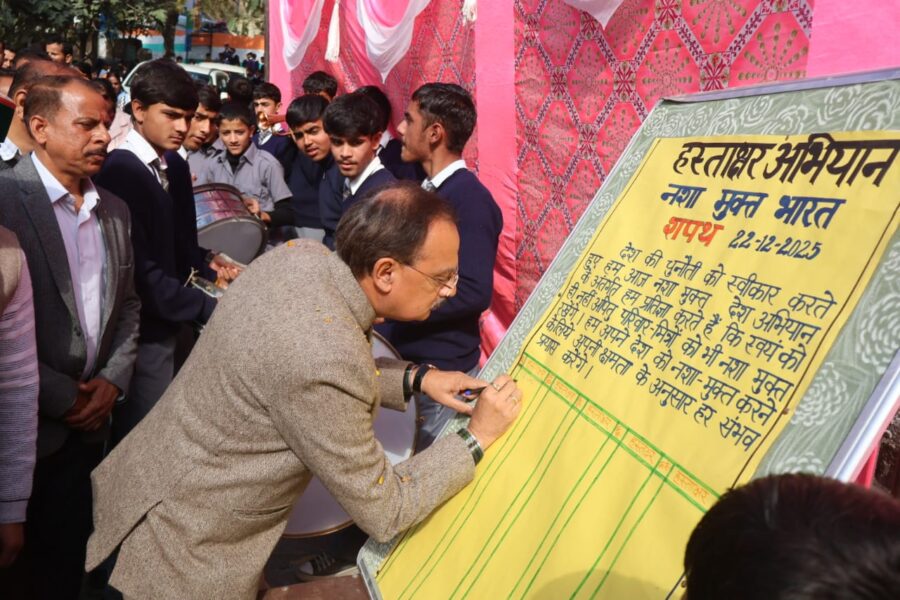 हस्ताक्षर अभियान
नशा मुक्त भारत
शपथ 22-12-2025
देश की चुनौती को स्वीकार करते
हुए हम आज नशा मुक्त देश अभियान
के अंतर्गत हम प्रतिज्ञा करते हैं, कि स्वयं को
ही नहीं अपितु परिवार-मित्रों को भी नशा मुक्त
रखेंगे। हम अपने देश को नशा-मुक्त करने
के लिये अपनी क्षमता के अनुसार हर संभव
प्रयास करेंगे।